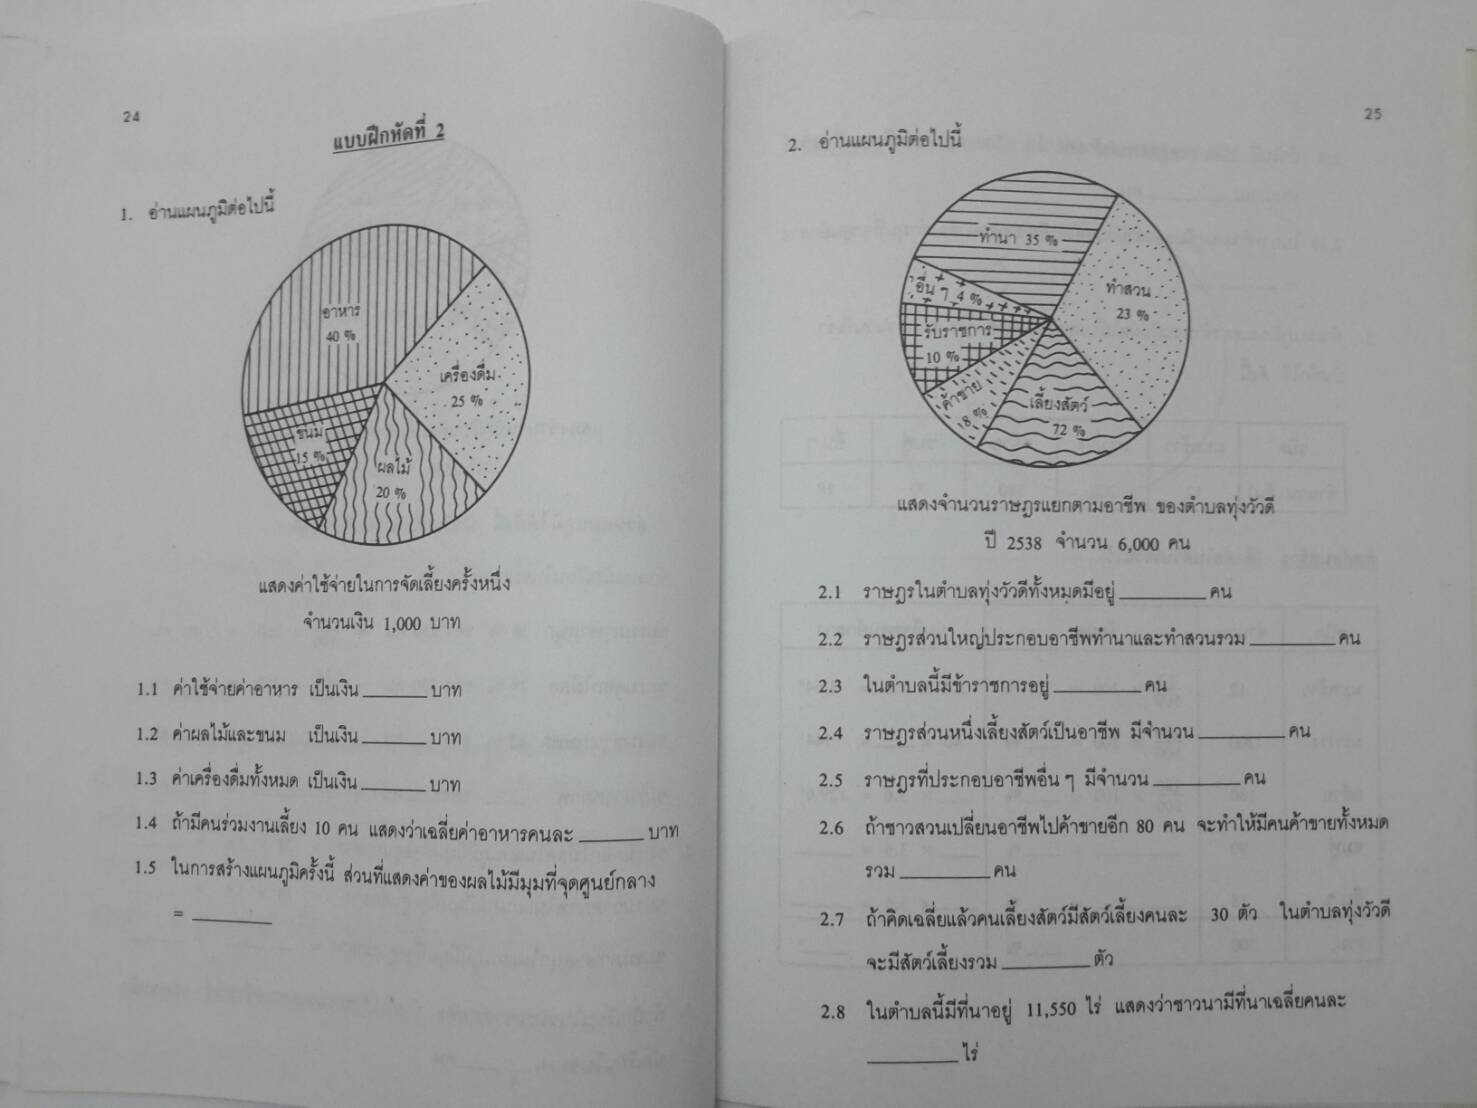 24
แบบฝึกหัดที่ 2
1. อ่านแผนภูมิต่อไปนี้
อาหาร
40 %
เครื่องดื่ม
25 %
ขนม
15 %
ผลไม้
20 %
แสดงค่าใช้จ่ายในการจัดเลี้ยงครั้งหนึ่ง
จำนวนเงิน 1,000 บาท
1.1 ค่าใช้จ่ายค่าอาหาร เป็นเงิน ________ บาท
1.2 ค่าผลไม้และขนม เป็นเงิน ________ บาท
1.3 ค่าเครื่องดื่มทั้งหมด เป็นเงิน ________ บาท
1.4 ถ้ามีคนร่วมงานเลี้ยง 10 คน แสดงว่าเฉลี่ยค่าอาหารคนละ ________ บาท
1.5 ในการสร้างแผนภูมิครั้งนี้ ส่วนที่แสดงค่าของผลไม้มีมุมที่จุดศูนย์กลาง
= ________
25
2. อ่านแผนภูมิต่อไปนี้
ทำนา 35 %
ทำสวน
23 %
อื่น ๆ 4 %
รับราชการ
10 %
ค้าขาย
18 %
เลี้ยงสัตว์
72 %
แสดงจำนวนราษฎรแยกตามอาชีพ ของตำบลทุ่งวัวดี
ปี 2538 จำนวน 6,000 คน
2.1 ราษฎรในตำบลทุ่งวัวดีทั้งหมดมีอยู่ ________ คน
2.2 ราษฎรส่วนใหญ่ประกอบอาชีพทำนาและทำสวนรวม ________ คน
2.3 ในตำบลนี้มีข้าราชการอยู่ ________ คน
2.4 ราษฎรส่วนหนึ่งเลี้ยงสัตว์เป็นอาชีพ มีจำนวน ________ คน
2.5 ราษฎรที่ประกอบอาชีพอื่น ๆ มีจำนวน ________ คน
2.6 ถ้าชาวสวนเปลี่ยนอาชีพไปค้าขายอีก 80 คน จะทำให้มีคนค้าขายทั้งหมด
รวม ________ คน
2.7 ถ้าคิดเฉลี่ยแล้วคนเลี้ยงสัตว์มีสัตว์เลี้ยงคนละ 30 ตัว ในตำบลทุ่งวัวดี
จะมีสัตว์เลี้ยงรวม ________ ตัว
2.8 ในตำบลนี้มีที่นาอยู่ 11,550 ไร่ แสดงว่าชาวนามีที่นาเฉลี่ยคนละ
________ ไร่